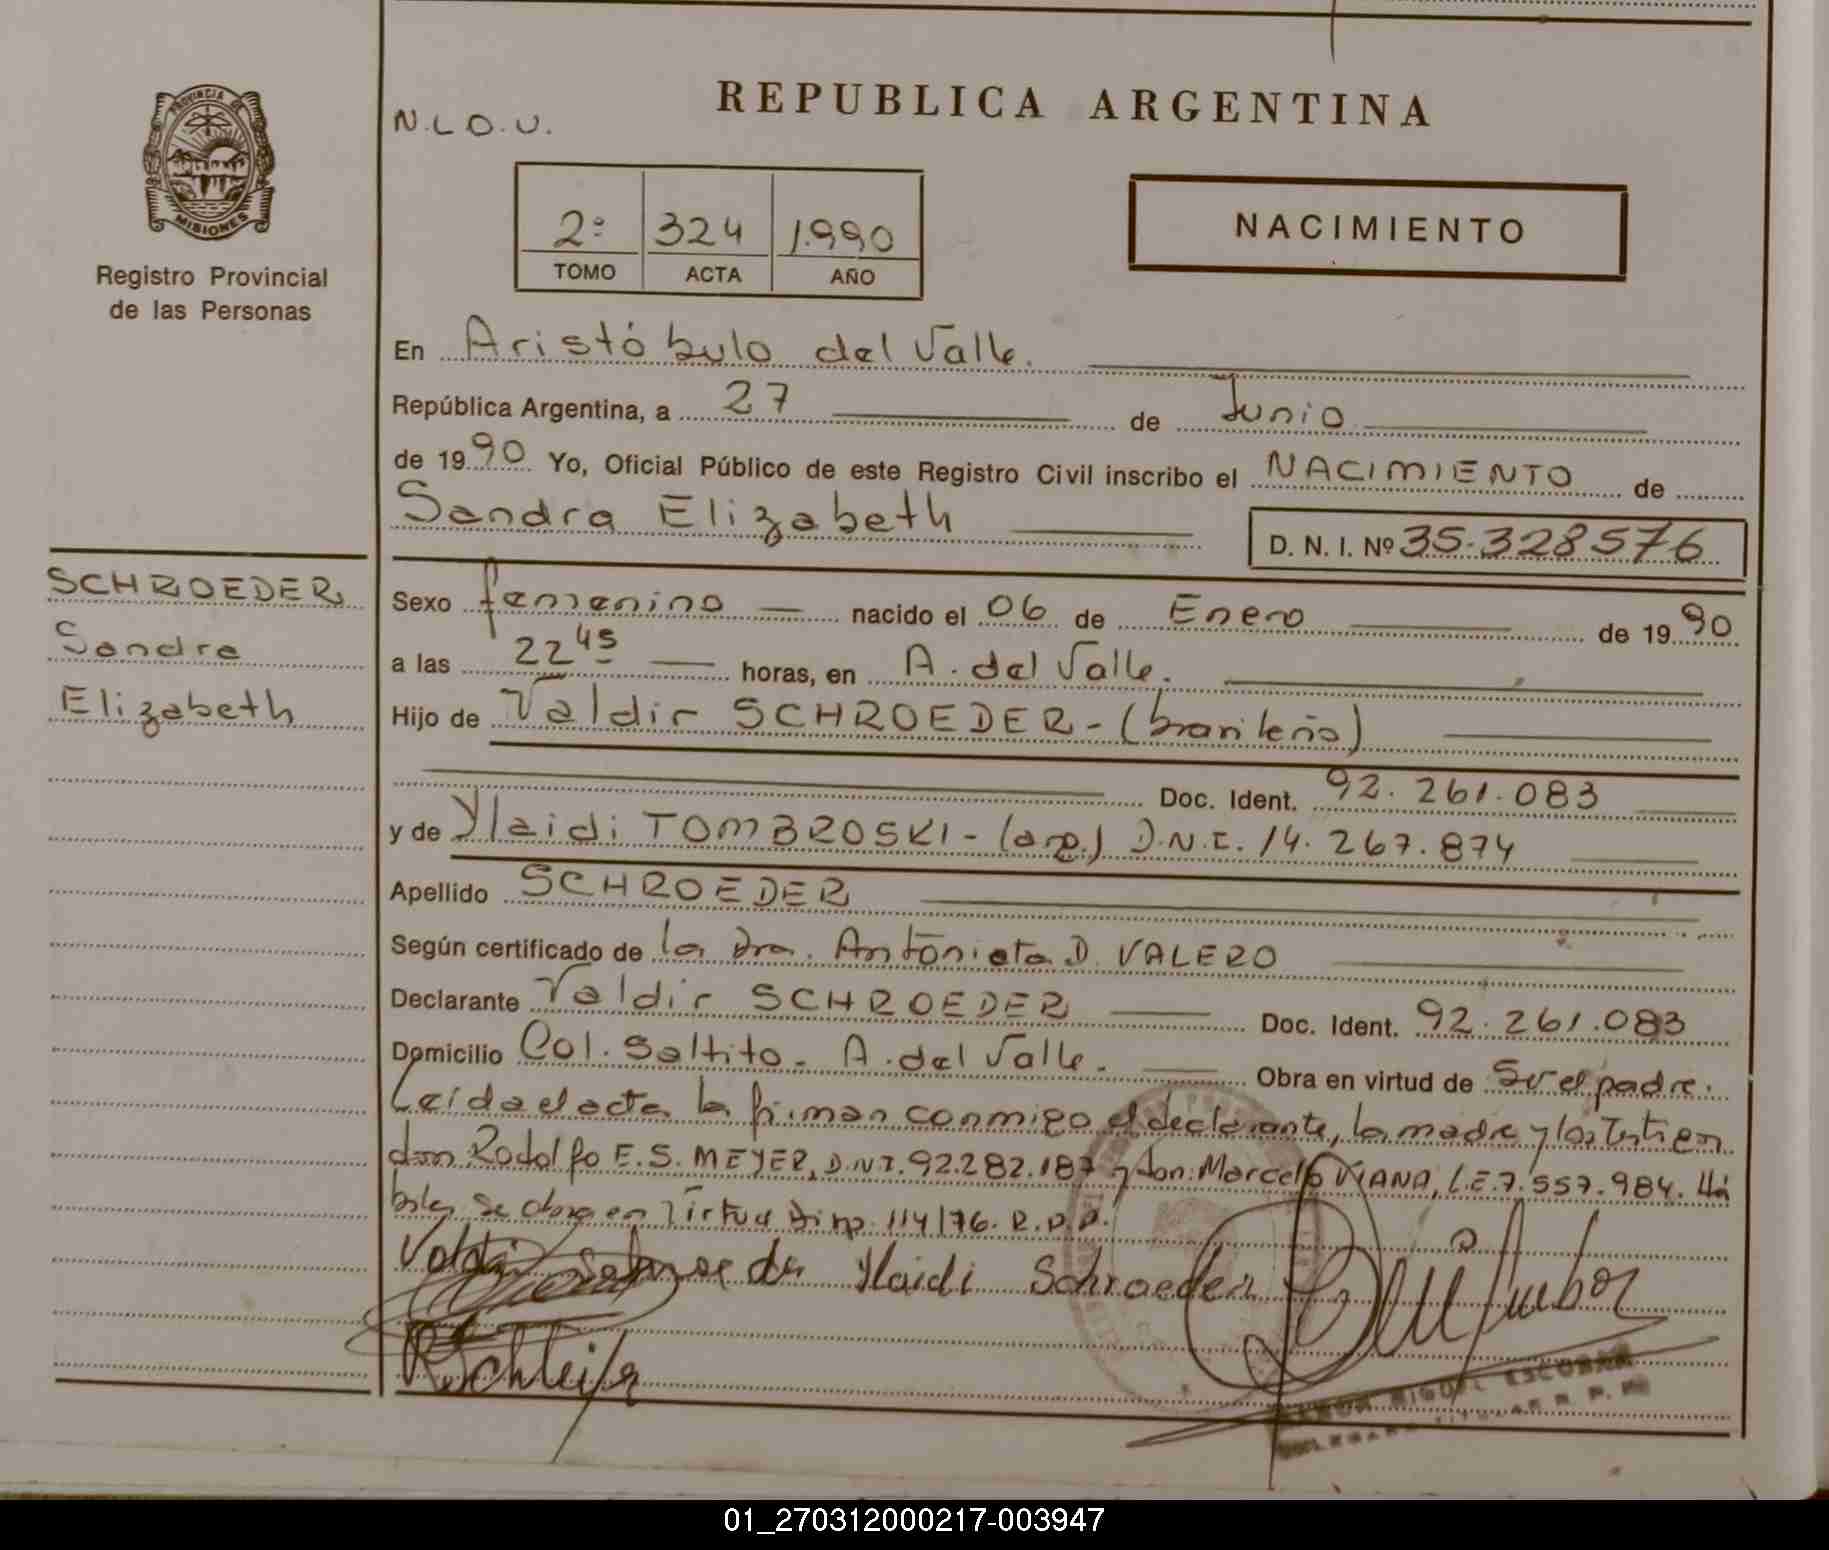 PROVINCIA DE
MISIONES
Registro Provincial
de las Personas
SCHROEDER
Sandra
Elizabeth
N.L.O.U.
REPUBLICA ARGENTINA
2º 324 1.990
TOMO ACTA AÑO
NACIMIENTO
En Aristóbulo del Valle.
República Argentina, a 27 de Junio
de 1990 Yo, Oficial Público de este Registro Civil inscribo el NACIMIENTO de
Sandra Elizabeth
D. N. I. Nº 35.328576
Sexo femenino nacido el 06 de Enero de 1990
a las 22 45 horas, en A. del Valle.
Hijo de Valdir SCHROEDER - (brasileño)
Doc. Ident. 92.261.083
y de Ylaidi TOMBROSKI - (arg.) D.N.I. 14.267.874
Apellido SCHROEDER
Según certificado de la Dra. Antonieta D. VALERO
Declarante Valdir SCHROEDER Doc. Ident. 92.261.083
Domicilio Col. Saltito - A. del Valle. Obra en virtud de Ser el padre.
Leída el acta la firman conmigo el declarante, la madre y los
don Rodolfo E.S. MEYER, D.N.I. 92.282.187 y don: Marcelo VIANA, L.E. 7.557.984. Há
biles se obra en Virtud Disp. 114/76. R.P.P.
Valdir Schroeder Ylaidi Schroeder
MIGUEL ESCOBAR
TITULAR R. P. P.
01_270312000217-003947